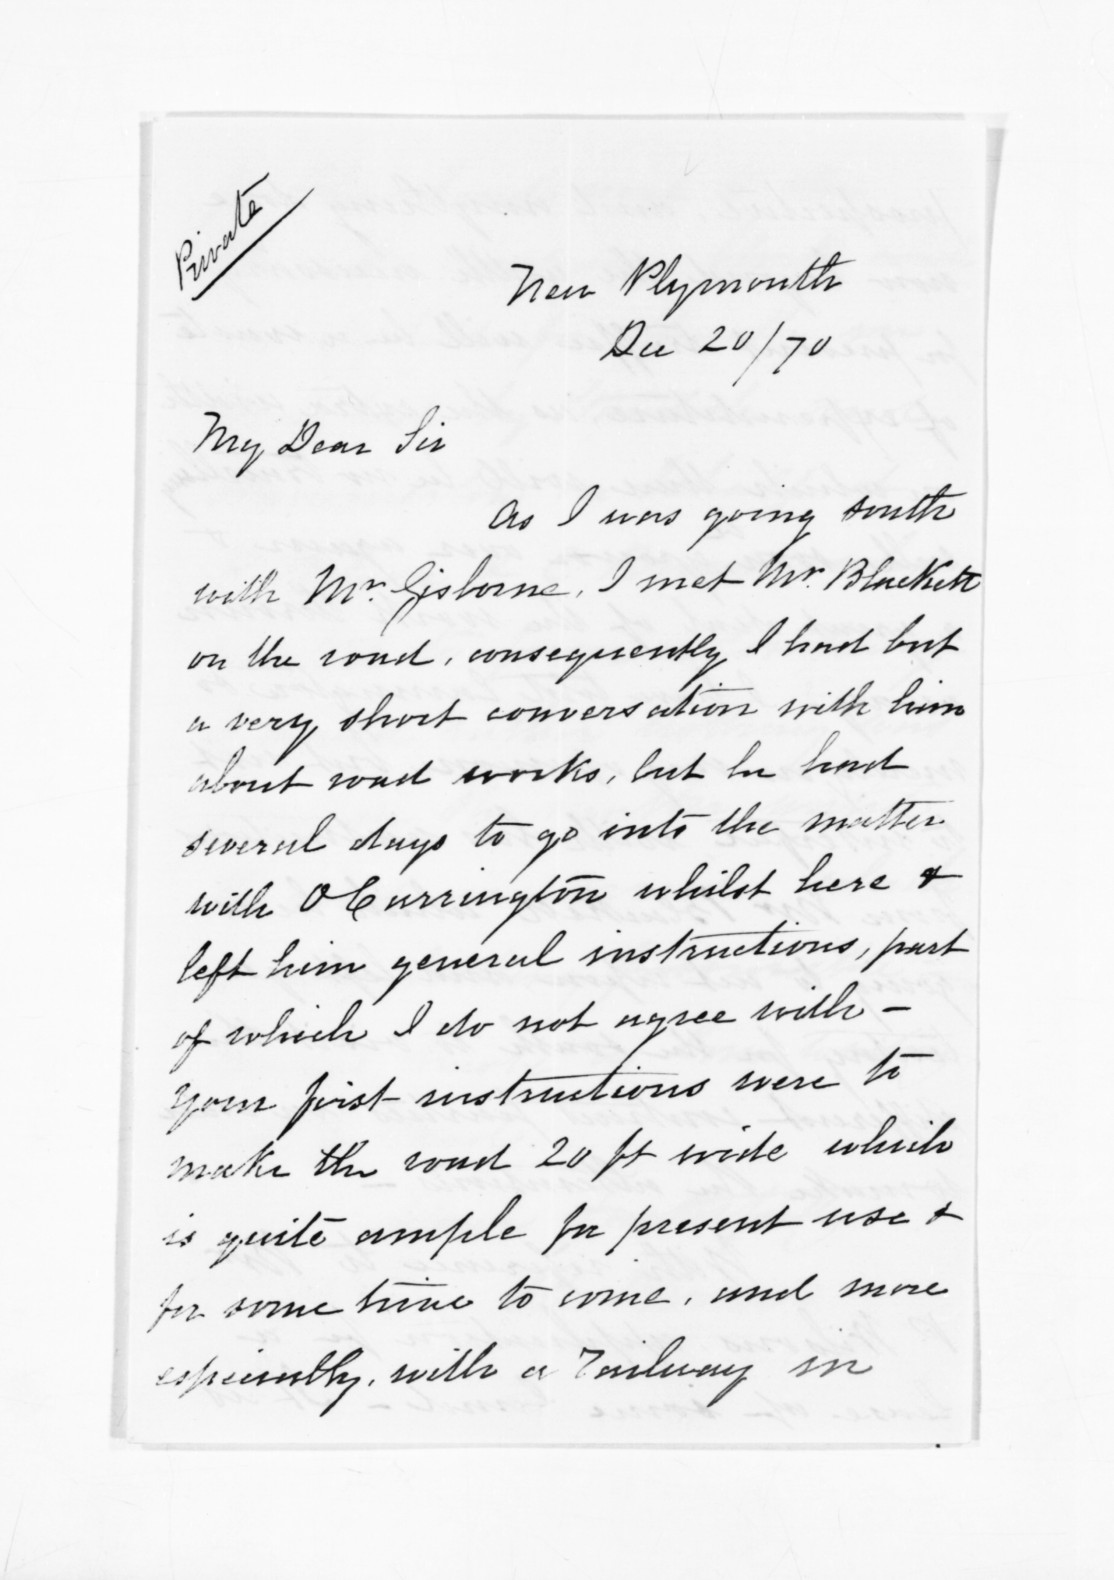 Private
New Plymouth
Dec 20/70
My Dear Sir
As I was going south
with Mr. Gisborne, I met Mr. Blackett
on the road, consequently I had but
a very short conversation with him
about road works, but he had
several days to go into the matter
with O Carrington whilst here &
left him general instructions, part
of which I do not agree with –
Your first instructions were to
make the road 20 ft wide which
is quite ample for present use &
for some time to come, and more
especially, with a Railway in